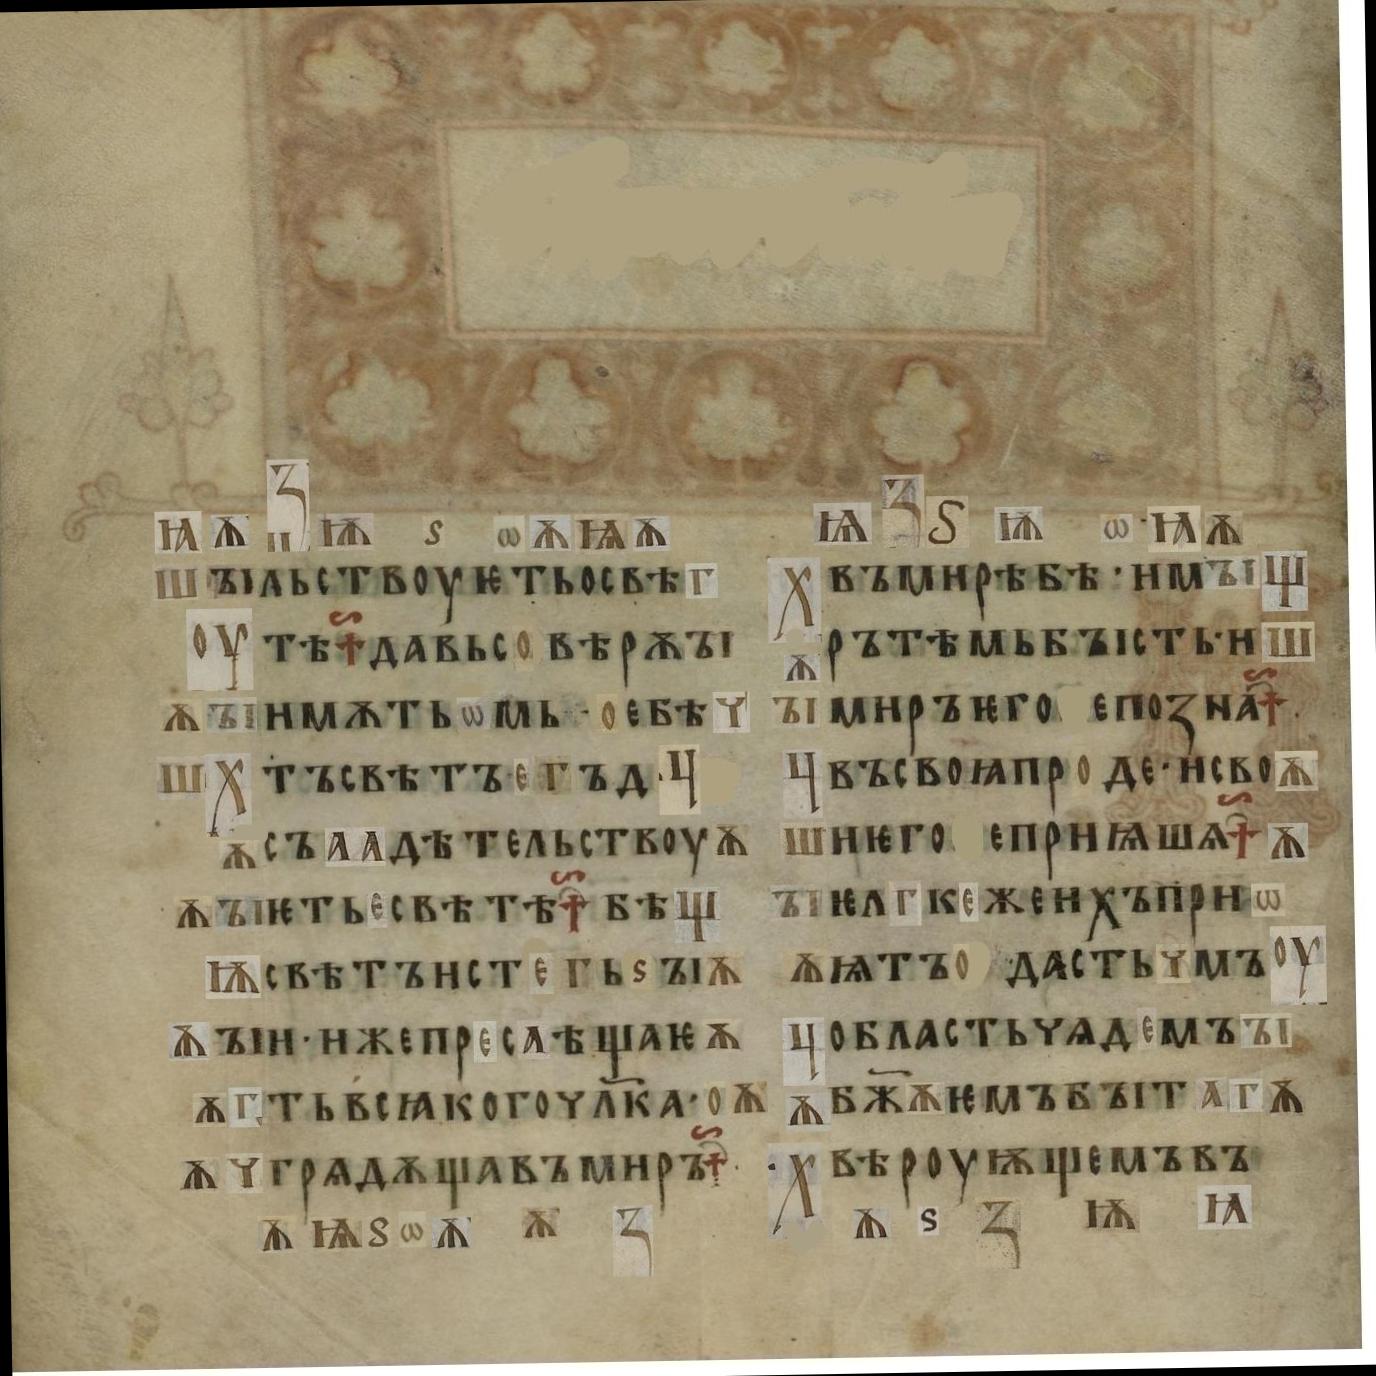 ꙗ ѫ З ѭ ѕ ѡ ѫ ѩ ѫ
ш ꙑльствоуѥтьосвѣг
оу тѣдавьсо вѣрѫꙑ
ѫꙑимѫтьѡмь·оебѣч
шх тъсвѣтъегъд·ч
ѫсъаадѣтельствоуѫ
ѫꙑѥтьесвѣтѣ бѣщ
ѭсвѣтъистегьѕꙑѫ
ѫꙑи·ижепресаѣщаюѫ
ѫгтьвсꙗкогочл҃ка·оѫ
ѫчгрѧдѫщавъмиръ
ѫ ѩ ѕ ѡ ѫ ѫ З
ꙗ З ѕ ѭ ѡ·ꙗ ѫ
хвъмирѣбѣ·имꙑщ
ѫрътѣмьбꙑсть·иш
ꙑмиръѥго епозна
чвъсвоꙗпро де·исвоѫ
шиѥго еприѩшѧ ѫ
ꙑѥлгкеженхъприѡ
ѫѩтъо ·дастьчмъоу
чобластьчѧдемъꙑ
ѫбж҃ѫѥмъбꙑтагѫ
·хвѣроуѭщемъвъ
ѫ ѕ З ѭ ꙗ